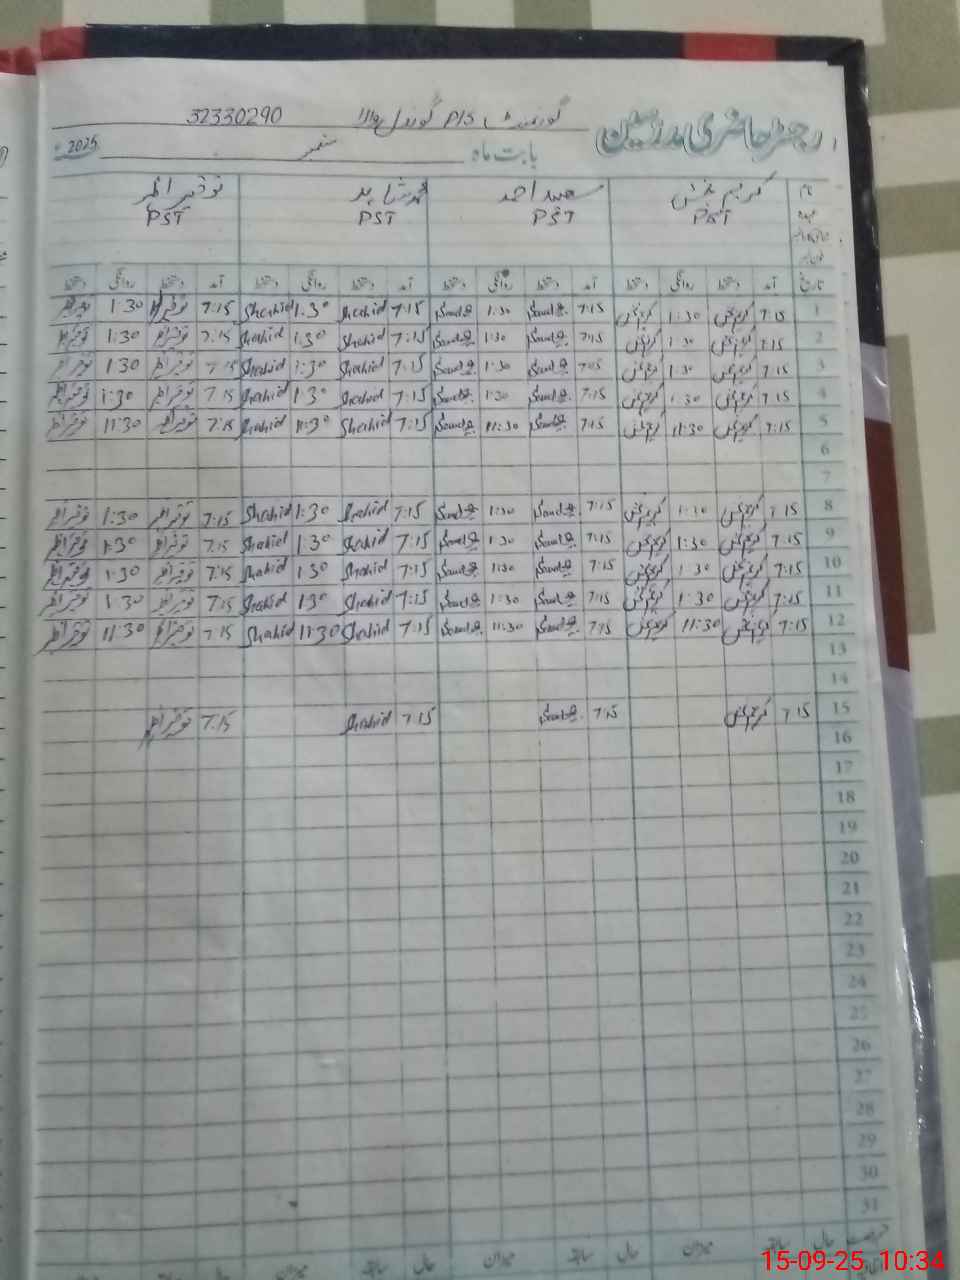 رجسٹر حاضری مدرسین
گورنمنٹ P/S گوندل والا 32330290
بابت ماہ ستمبر 2025ء
نام کریم بخش سعید احمد محمد شاہد
عہدہ PST PST PST PST
تاریخ آمد دستخط روانگی دستخط آمد دستخط روانگی دستخط آمد دستخط روانگی دستخط آمد دستخط روانگی دستخط
1 7:15 کریم بخش 1:30 کریم بخش 7:15 Saeed 1:30 Saeed 7:15 Shahid 1:30 Shahid 7:15 1:30
2 7:15 کریم بخش 1:30 کریم بخش 7:15 Saeed 1:30 Saeed 7:15 Shahid 1:30 Shahid 7:15 1:30
3 7:15 کریم بخش 1:30 کریم بخش 7:15 Saeed 1:30 Saeed 7:15 Shahid 1:30 Shahid 7:15 1:30
4 7:15 کریم بخش 1:30 کریم بخش 7:15 Saeed 1:30 Saeed 7:15 Shahid 1:30 Shahid 7:15 1:30
5 7:15 کریم بخش 11:30 کریم بخش 7:15 Saeed 11:30 Saeed 7:15 Shahid 11:30 Shahid 7:15 11:30
6
7
8 7:15 کریم بخش 1:30 کریم بخش 7:15 Saeed 1:30 Saeed 7:15 Shahid 1:30 Shahid 7:15 1:30
9 7:15 کریم بخش 1:30 کریم بخش 7:15 Saeed 1:30 Saeed 7:15 Shahid 1:30 Shahid 7:15 1:30
10 7:15 کریم بخش 1:30 کریم بخش 7:15 Saeed 1:30 Saeed 7:15 Shahid 1:30 Shahid 7:15 1:30
11 7:15 کریم بخش 1:30 کریم بخش 7:15 Saeed 1:30 Saeed 7:15 Shahid 1:30 Shahid 7:15 1:30
12 7:15 کریم بخش 11:30 کریم بخش 7:15 Saeed 11:30 Saeed 7:15 Shahid 11:30 Shahid 7:15 11:30
13
14
15 7:15 کریم بخش 7:15 Saeed 7:15 Shahid 7:15
16
17
18
19
20
21
22
23
24
25
26
27
28
29
30
31
حال سابقہ میزان حال سابقہ میزان حال سابقہ میزان
15-09-25 10:34